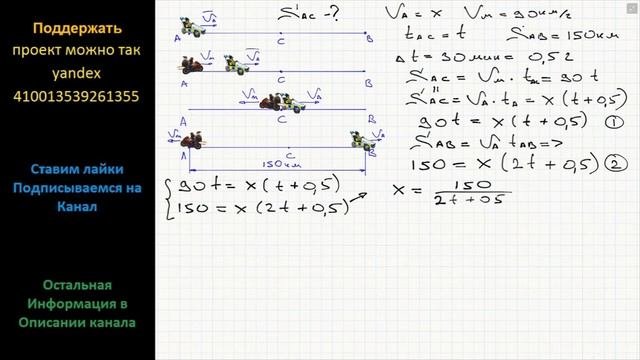 Поддержать
проект можно так
yandex
410013539261355
Ставим лайки
Подписываемся на
Канал
Остальная
Информация в
Описании канала
S AC = ?
V A
A C B
V м V A
A C B
V м V A
A B
V м V A
A C B
150 км
{ 90t = x(t+0,5)
150 = x(2t+0,5)
V A = x V м = 90 км/ч
t AC = t S AB = 150 км
Δt = 30 мин = 0,5 ч
S' AC = V м · t м = 90 t
S'' AC = V A · t A = x(t+0,5)
90t = x(t+0,5) ①
S AB = V A t AB =>
150 = x(2t+0,5) ②
x = 150 / 2t+05